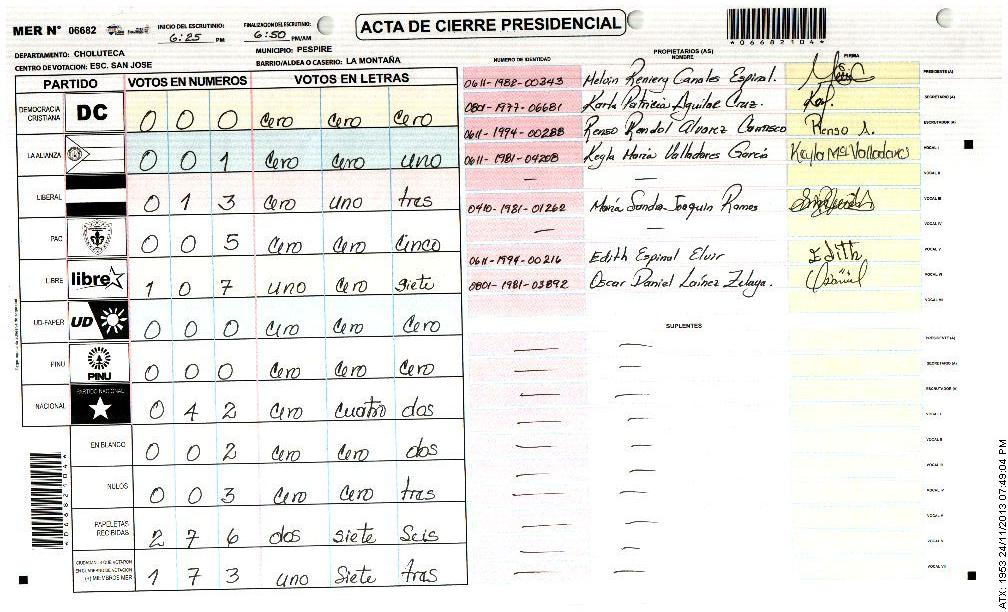 MER Nº 06682
INICIO DEL ESCRUTINIO: 6:25 PM
FINALIZACION DEL ESCRUTINIO: 6:50 PM/AM
ACTA DE CIERRE PRESIDENCIAL
*06682104*
DEPARTAMENTO: CHOLUTECA
MUNICIPIO: PESPIRE
CENTRO DE VOTACION: ESC. SAN JOSE
BARRIO/ALDEA O CASERIO: LA MONTAÑA
PARTIDO VOTOS EN NUMEROS VOTOS EN LETRAS
DEMOCRACIA CRISTIANA DC 0 0 0 Cero Cero Cero
LA ALIANZA 0 0 1 Cero Cero uno
LIBERAL 0 1 3 Cero uno tres
PAC 0 0 5 Cero Cero Cinco
LIBRE libre 1 0 7 uno Cero Siete
UD-FAPER UD 0 0 0 Cero Cero Cero
PINU PINU 0 0 0 Cero Cero Cero
NACIONAL PARTIDO NACIONAL 0 4 2 Cero Cuatro dos
EN BLANCO 0 0 2 Cero Cero dos
NULOS 0 0 3 Cero Cero tres
PAPELETAS RECIBIDAS 2 7 6 dos siete Seis
CIUDADANOS QUE VOTARON EN EL CENTRO DE VOTACION (+) MIEMBROS MER 1 7 3 uno Siete tres
PROPIETARIOS (AS)
NUMERO DE IDENTIDAD NOMBRE FIRMA
0611-1982-00343 Melvin Reniery Canales Espinal. PRESIDENTE (A)
0801-1977-06681 Karla Patricia Aguilar Cruz. Kar. SECRETARIO (A)
0611-1994-00288 Renso Randol Alvarez Renso A. ESCRUTADOR (A)
0611-1981-04208 Keyla Maria Valladares García Keyla Mª Valladares VOCAL I
— — VOCAL II
0410-1981-01262 María Sandra Joaquin Ramos VOCAL III
— — VOCAL IV
0611-1994-00216 Edith Espinal Elvir Edith VOCAL V
0801-1981-03892 Oscar Daniel Laínez Zelaya. VOCAL VI
VOCAL VII
SUPLENTES
— — PRESIDENTE (A)
— — SECRETARIO (A)
— — ESCRUTADOR (A)
— — VOCAL I
— — VOCAL II
— — VOCAL III
— — VOCAL IV
— — VOCAL V
— — VOCAL VI
— — VOCAL VII
*06682104*
ATX: 1953 24/11/2013 07:49:04 PM